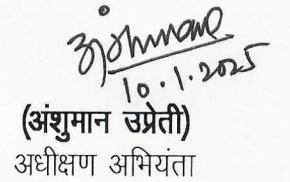 अंशुमान
10.1.2025
(अंशुमान उप्रेती)
अधीक्षण अभियंता